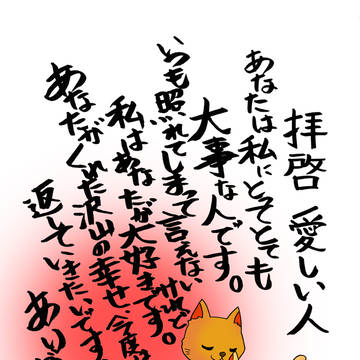 拝啓 愛しい人
あなたは私にとってとても
大事な人です。
いつも照れてしまって言えないけれど
私はあなたが大好きです。
あなたがくれた沢山の幸せ、今度は
返していきたいです
あり